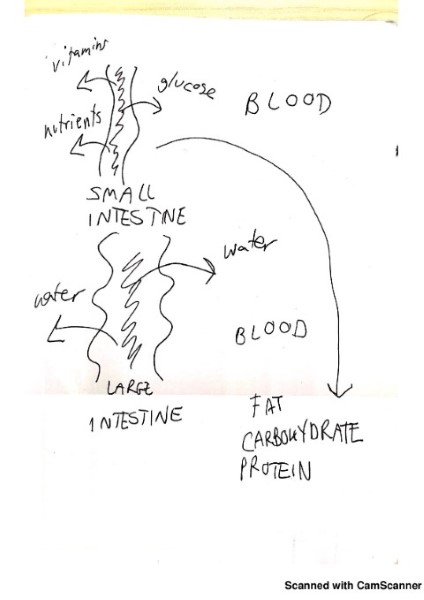 vitamins
glucose
BLOOD
nutrients
SMALL
INTESTINE
water
water
BLOOD
LARGE
INTESTINE
FAT
CARBOHYDRATE
PROTEIN
Scanned with CamScanner